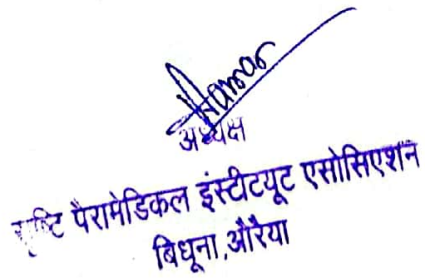 अध्यक्ष
सृष्टि पैरामेडिकल इंस्टीटयूट एसोसिएशन
बिधूना,औरैया